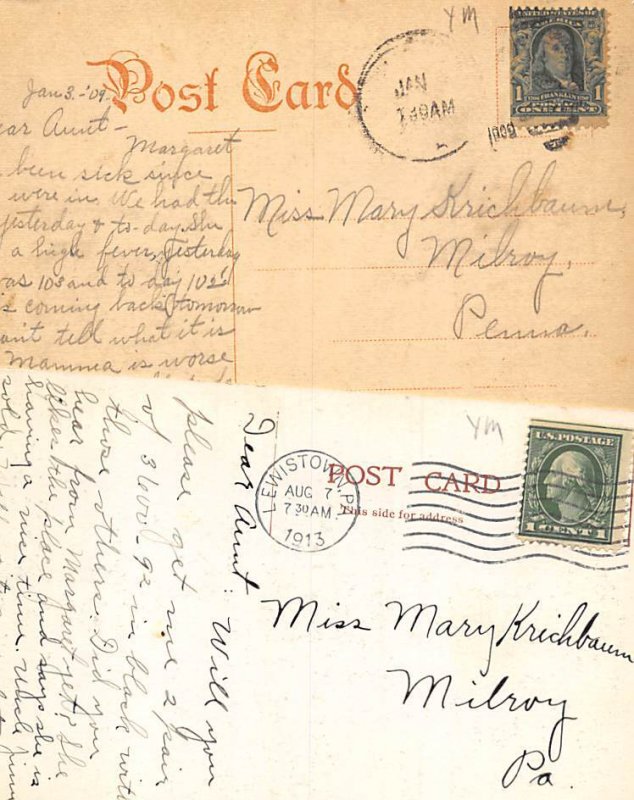 YM
Post Card
JAN
7 30 AM
1909
UNITED STATES OF AMERICA
FRANKLIN
1 ONE CENT 1
Jan 3. - '09.
ear Aunt -
Margaret
been sick since
were in. We had the
yesterday & to-day. She
a high fever, yesterday
as 103 and to day 102
coming back tomorrow
an't tell what it is
Mamma is worse
Miss Mary Krichbaum,
Milroy,
Penna.
YM
POST CARD
This side for address
LEWISTOWN, PA.
AUG 7
7 30 AM
1913
U.S. POSTAGE
1 CENT 1
Dear Aunt: Will you
please get me 2 pair
of 3600-9½ in black with
those others. Did you
hear from Margaret yet? She
likes the place and says she is
having a nice time. Uncle Jimmy
sold
Miss Mary Krichbaum
Milroy
Pa.